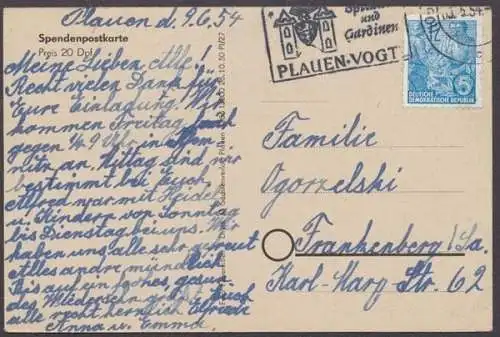 Plauen d. 9.6.54
Spendenpostkarte
Preis 20 Dpf.
Meine Lieben Alle!
Recht vielen Dank für
Eure Einladung. Wir
kommen Freitag
gegen ¾9 Uhr in Chem
nitz an. Mittag sind wir
bestimmt bei Euch.
Alfred war mit Heidel
u. Kindern von Sonntag
bis Dienstag bei uns. Wir
haben uns alle sehr gefreut
Alles andre mündlich
Bis auf ein frohes, gesun-
des Wiedersehn grüßt Euch
alle recht herzlich Elfriede
Anna u. Emma.
Spitzen
und
Gardinen
PLAUEN-VOGTL
DEUTSCHE
DEMOKRATISCHE REPUBLIK
5
Familie
Ogorzelski
Frankenberg/Sa.
Karl-Marx Str. 62